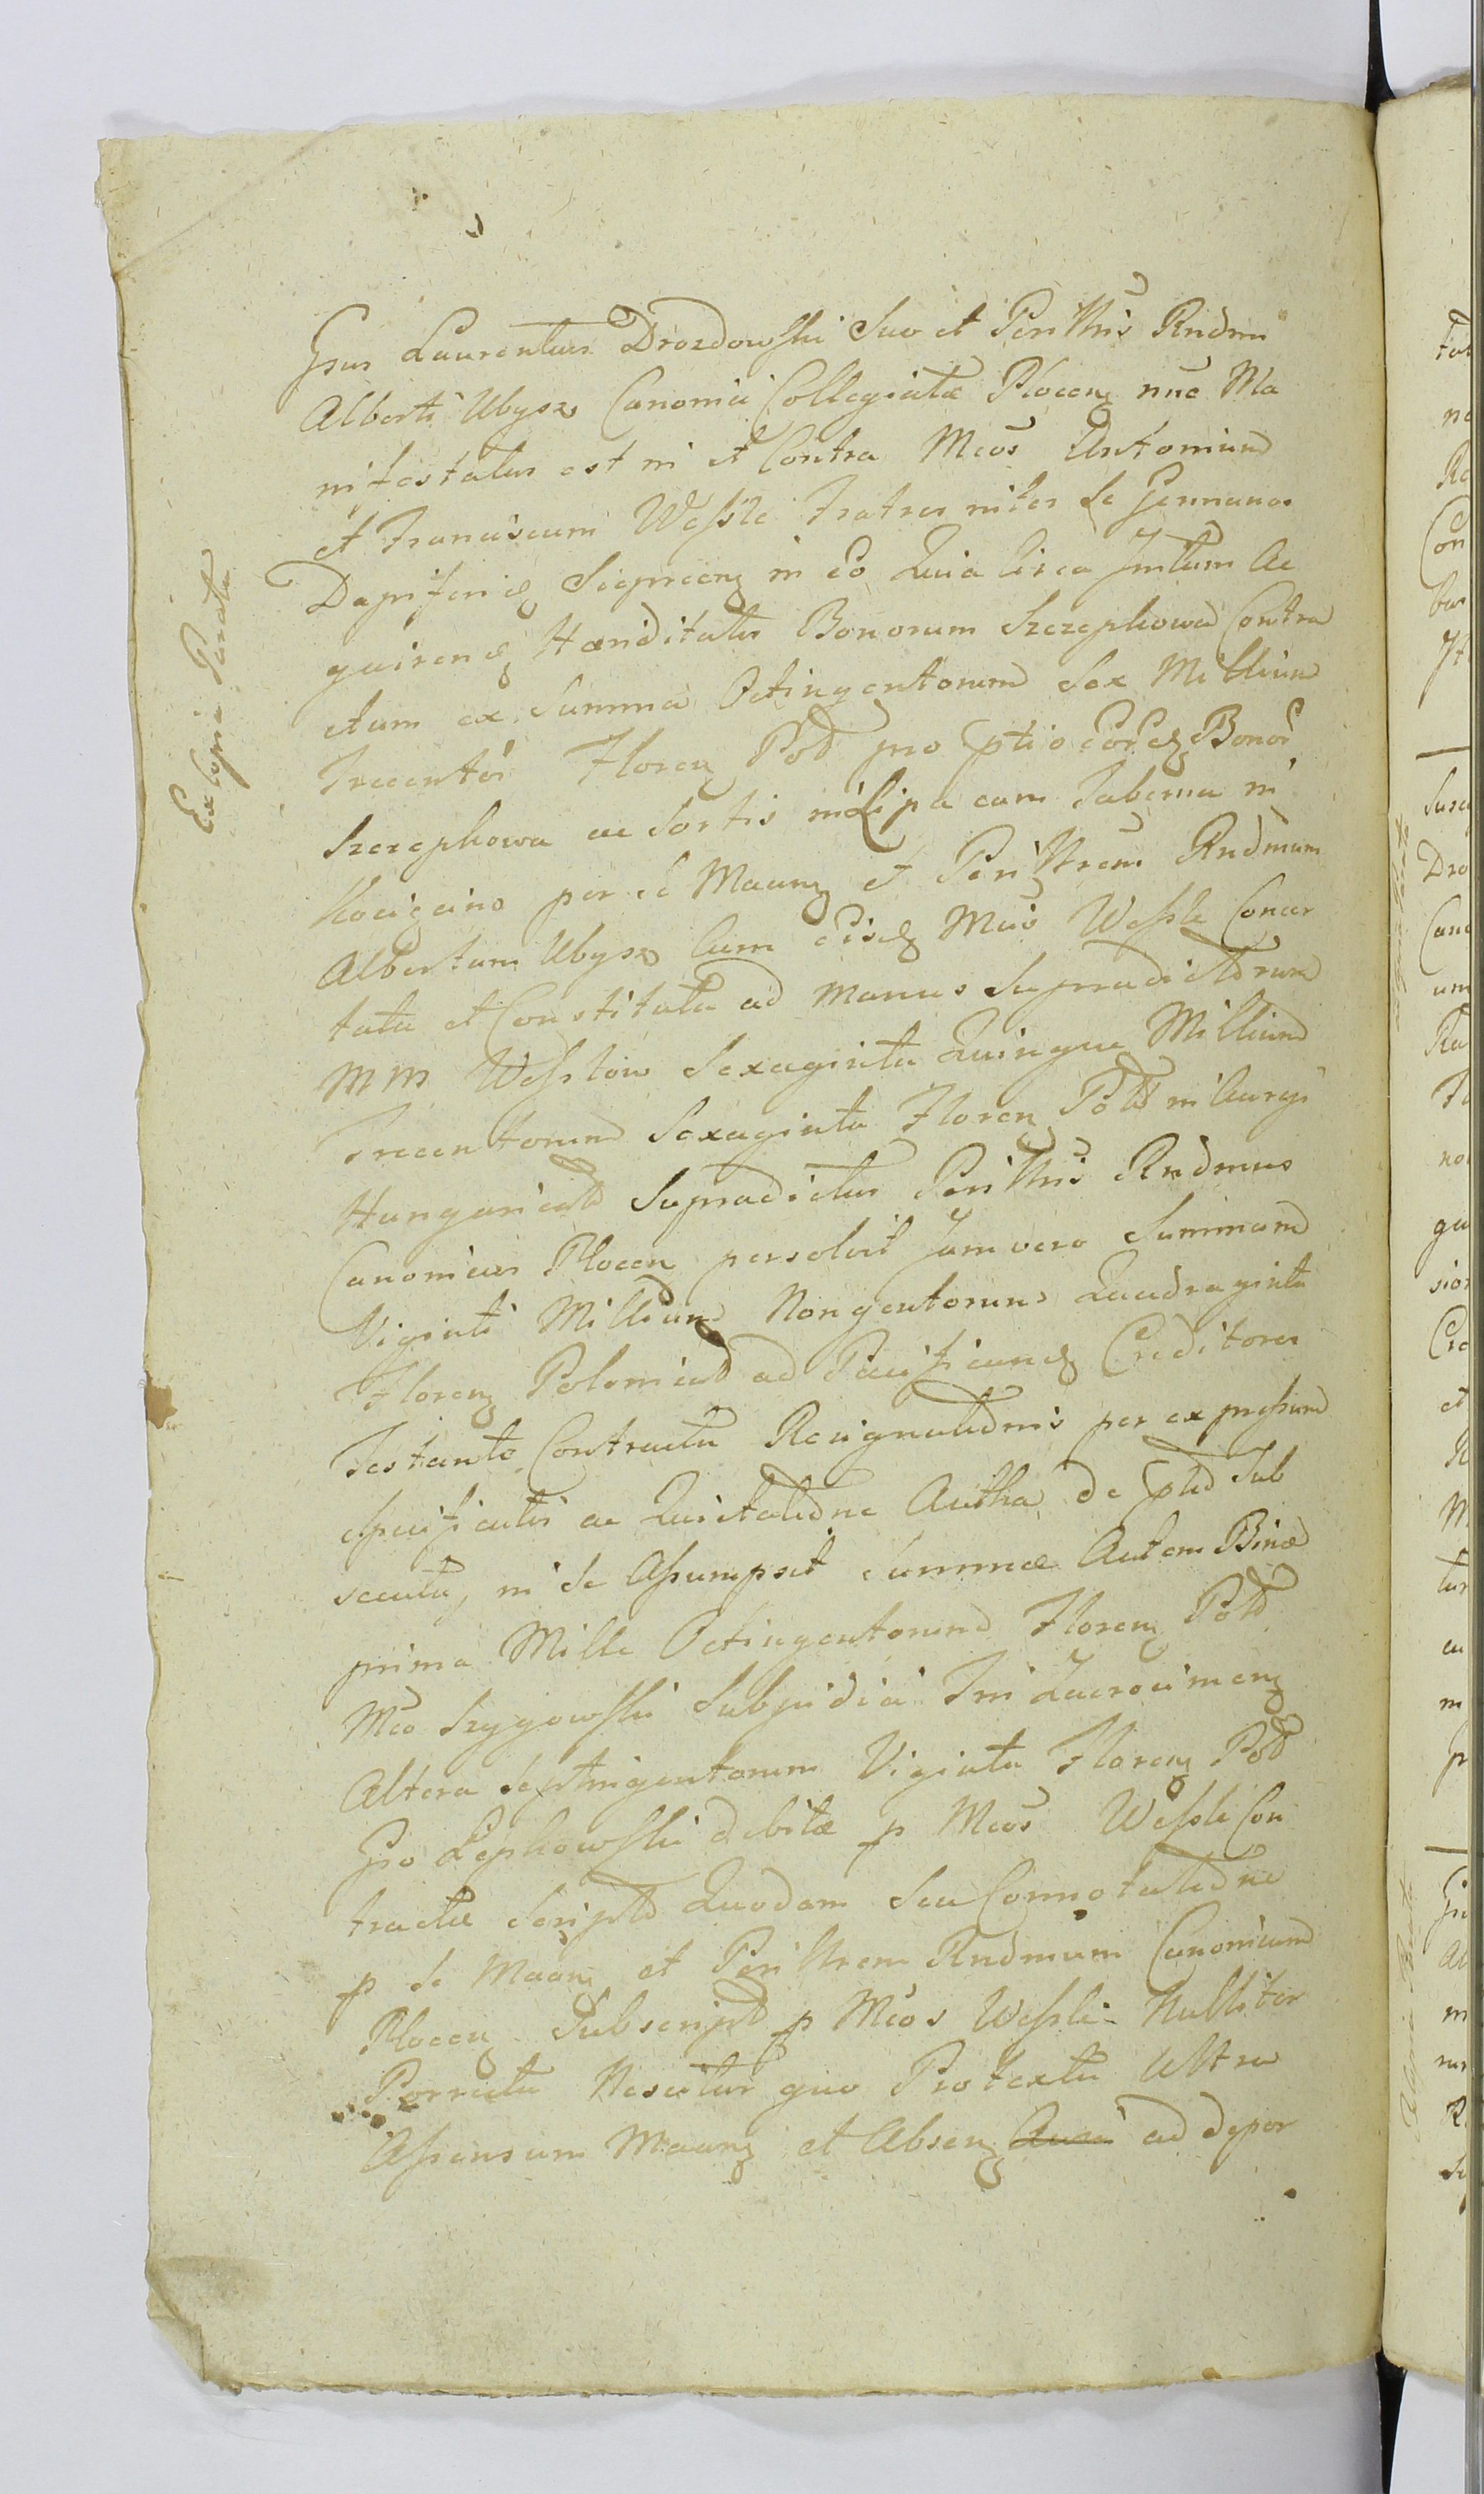 Ex Copia Parata
Gsus Laurentius Drozdowski Suo et PerIllris Rndmi
Alberti Ubysz Canonici Collegiatæ Plocen nne Ma
nifestatus est in et Contra Mcos Antonium
et Franciscum Wessle Fratres inter se Germanos
Dapiferi Siepræcen in Eo Quia Circa Initum Ac
quiren Hæriditatis Bonorum Szczepkowa Contra
ctum ex Summa Octingentorum Sex Millium
Trecentor Floren Pol pro ptio eor Bonor
Szczepkowa ac Sortis in Lipa cum Taberna in
per se Maan et PerIllrem Rndmum
Albertum Ubysz Cum Eis Mcis Wessle Concer
tata et Constituta ad manus Supradictorum
MM Wesslow Sexaginta Quinque Millium
Trecentorum Sexaginta Floren Poll in Aureis
Hungarical Supradictus PerIllris Rndmus
Canonicus Plocen persolvit Jam vero Summam
Viginti Millium Nongentorum Quadraginta
Floren Polonical ad Pacifican Creditores
Testante Contractu Resignationis per expressum
Specificatis ac Quietatione Autha de ptio Sub
secuta, in Se Assumpsit Summæ Autem Binæ
prima Mille Octingentorum Floren Poll
Mco Szygowski Subjudici Tri Zacrocimen
Altera Septingentorum Viginti Floren Poll
Gso Lepkowski debitæ p Mcos Wessle Con
tractu Scripto Quodam Seu Connotatione
p se Maan et PerIllrem Rndmum Canonicum
Plocen Subscript p Mcos Wessle Nulliter
Porrecta Nescitur quo Protextu Ultra
Assensum Maan et Absen ad depor